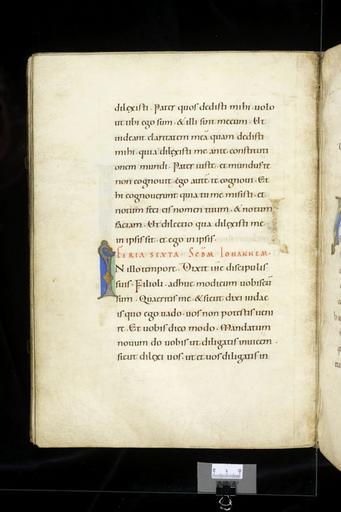 dilexisti. Pater quos dedisti mihi. uolo
ut ubi ego sum. & illi sint mecum. Et
uideant claritatem meā quam dedisti
mihi. quia dilexisti me ante constituti
onem mundi. Pater iuste. et mundus te
non cognouit. ego autē te cognoui. Et
hi cognouerunt quia tu me misisti. et
notum feci eis nomen tuum. & notum
faciam. Et dilectio qua dilexisti me
in ipsis sit. et ego in ipsis.
FERIA SEXTA. Scđm IOHANNEM.
IN illo tempore. Dixit ihc discipulis
suis. Filioli. adhuc modicum uobiscū
sum. Quaeritis me. & sicut dixi iudae
is quo ego uado. uos non potestis ueni
re. Et uobis dico modo. Mandatum
nouum do uobis ut diligatis inuicem.
sicut dilexi uos. ut et uos diligatis in